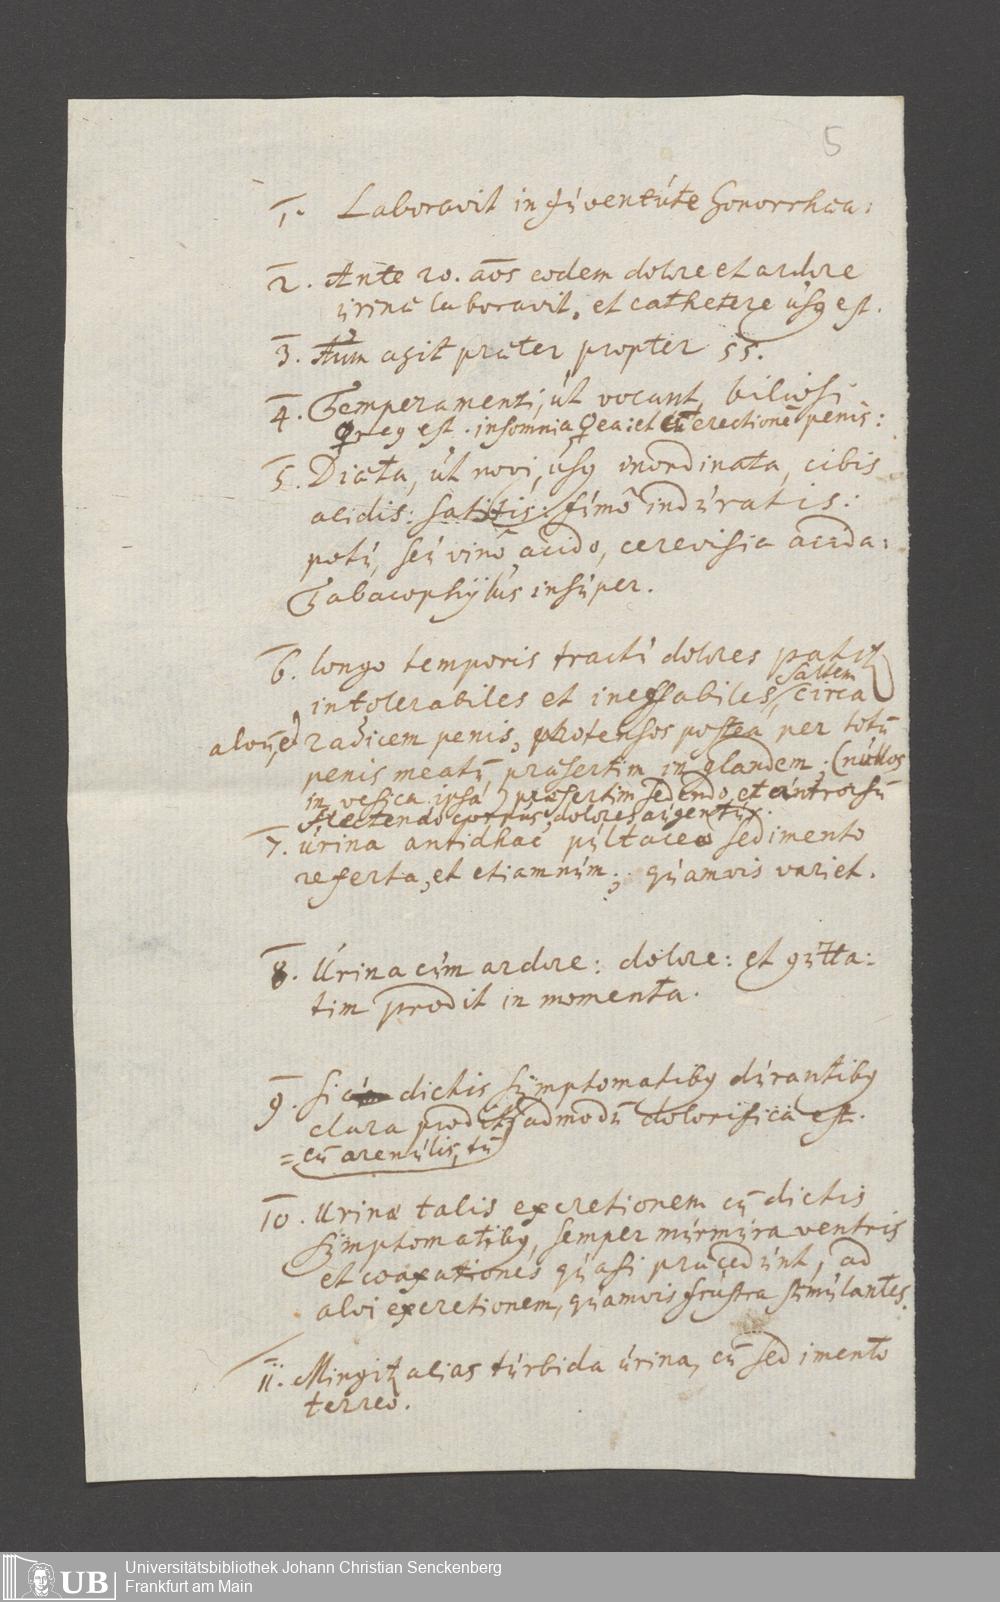 5
1. Laboravit in juventute Gonorrhœa:
2. Ante 20. aōs eodem dolore et ardore
urinæ laboravit, et cathetere usq est.
3. Aūm agit præter propter 55.
4. Temperamenti, ut vocant, biliosi
est. insomnia et cū erectionē penis:
5. Diæta, ut novi, usq inordinata, cibis
acidis: salitis: fumō induratis:
potu, seu vinō acido, cerevisia acida:
Tabacophylus insuper.
6. longo temporis tractu dolores patit
intolerabiles et ineffabiles, saltem circa
radicem penis, protensos postea per totū
penis meatū, præsertim in glandem; (nullos
in vesica ipsa) præsertim sedendo et antrorsū
flectendo corpus, dolores augentur.
7. urina antidhac pultaceo sedimento
referta, et etiamnum; quamvis variet.
8. Urina cum ardore: dolore: et gutta:
tim prodit in momenta.
9. Si dictis symptomatibq durantibq
clara prodit, admodū dolorifica est.
= cū arenulis, tū
10. Urinæ talis excretionem cū dictis
symptomatibq, semper murmura ventris
et coaxationes quasi præcedunt, ad
alvi excretionem, quamvis frustra stimulantes.
11. Mingit alias turbida urina, cū sedimento
terreo.
UB
Universitätsbibliothek Johann Christian Senckenberg
Frankfurt am Main